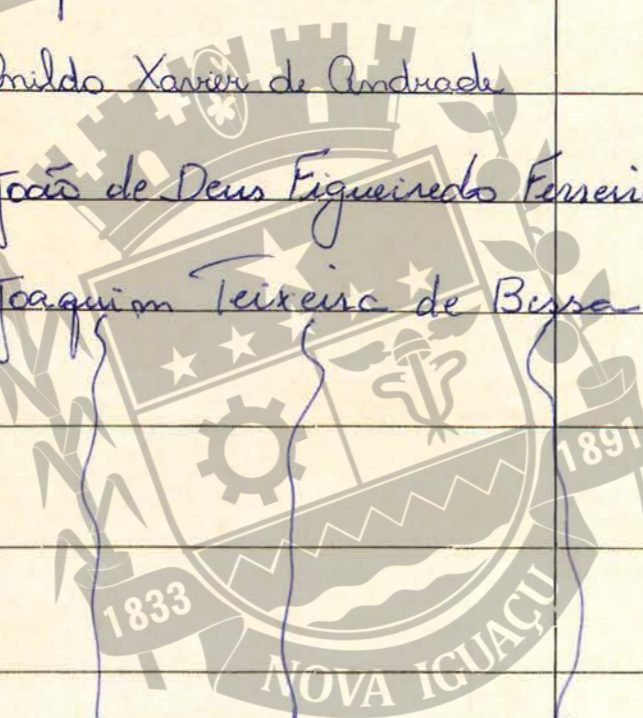 Xavier de Andrade
João de Deus Figueiredo Ferrei
Joaquim Teixeira de Bessa
1891
1833
NOVA IGUAÇU